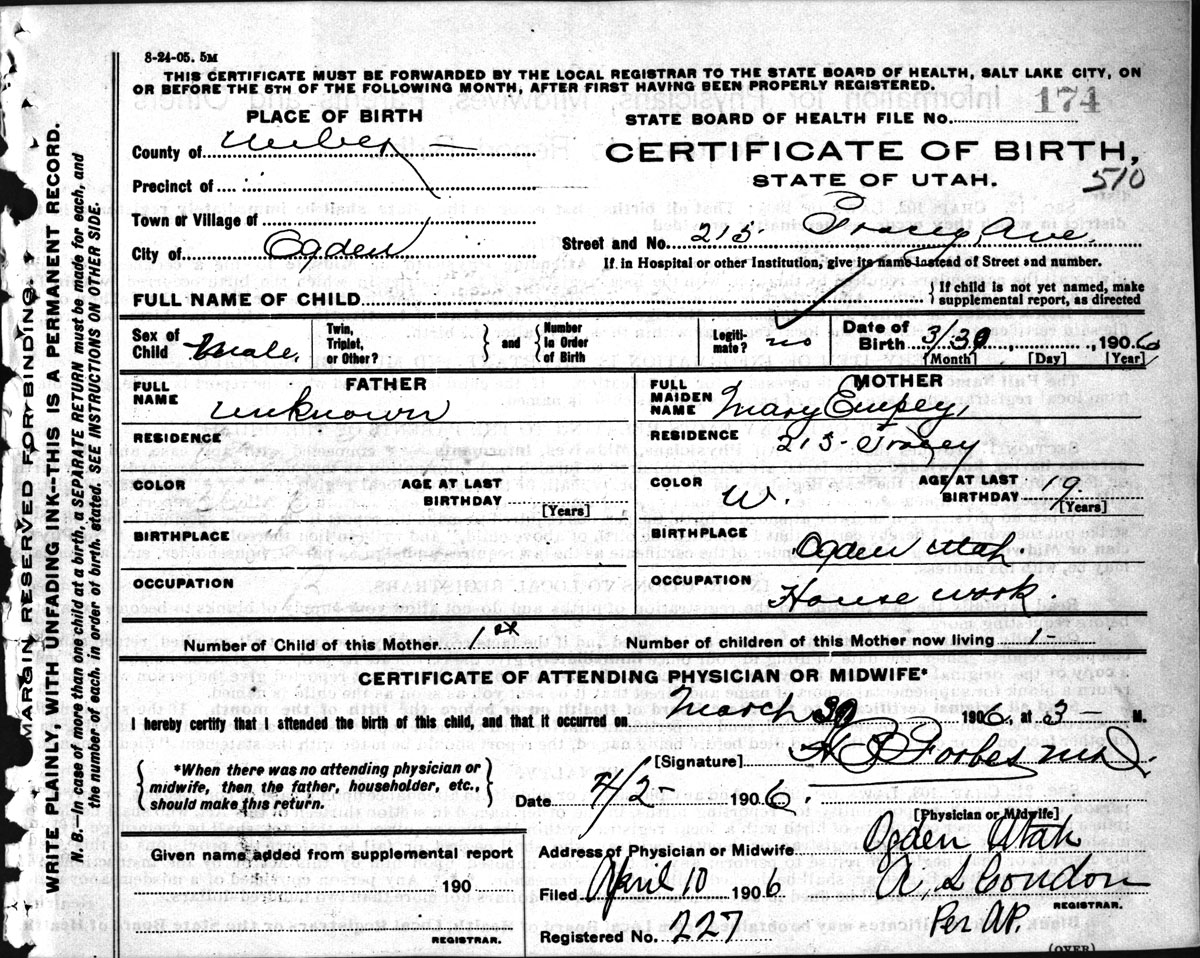 8-24-05. 5M
THIS CERTIFICATE MUST BE FORWARDED BY THE LOCAL REGISTRAR TO THE STATE BOARD OF HEALTH, SALT LAKE CITY, ON
OR BEFORE THE 5TH OF THE FOLLOWING MONTH, AFTER FIRST HAVING BEEN PROPERLY REGISTERED.
PLACE OF BIRTH
STATE BOARD OF HEALTH FILE No. 174
County of Weber
CERTIFICATE OF BIRTH,
STATE OF UTAH.
510
Precinct of
Town or Village of
City of Ogden
Street and No. 215 Ave.
If in Hospital or other Institution, give its name instead of Street and number.
FULL NAME OF CHILD
If child is not yet named, make supplemental report, as directed
Sex of Child Male. Twin, Triplet, or Other? and Number in Order of Birth Legitimate? no Date of Birth 3/30, 1906
[Month] [Day] [Year]
FATHER
FULL NAME unknown
RESIDENCE
COLOR AGE AT LAST BIRTHDAY [Years]
BIRTHPLACE
OCCUPATION
MOTHER
FULL MAIDEN NAME Mary Empey,
RESIDENCE 215 - Tracey
COLOR W. AGE AT LAST BIRTHDAY 19. [Years]
BIRTHPLACE Ogden Utah
OCCUPATION House work.
Number of Child of this Mother 1st Number of children of this Mother now living 1-
CERTIFICATE OF ATTENDING PHYSICIAN OR MIDWIFE*
I hereby certify that I attended the birth of this child, and that it occurred on March 30 1906, at 3- M.
*When there was no attending physician or midwife, then the father, householder, etc., should make this return.
[Signature] Forbes M.D.
Date 4/2- 1906.
[Physician or Midwife]
Given name added from supplemental report
190
REGISTRAR.
Address of Physician or Midwife. Ogden Utah
Filed April 10 1906 R S Condon
REGISTRAR.
Registered No. 227 Per AP.
(OVER)
MARGIN RESERVED FOR BINDING.
WRITE PLAINLY, WITH UNFADING INK--THIS IS A PERMANENT RECORD.
N. B.—In case of more than one child at a birth, a SEPARATE RETURN must be made for each, and
the number of each, in order of birth, stated. SEE INSTRUCTIONS ON OTHER SIDE.